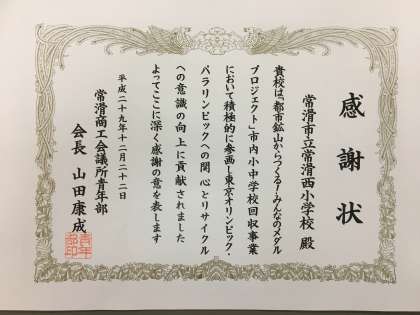 感謝状
常滑市立常滑西小学校 殿
貴校は「都市鉱山からつくる!みんなのメダル
プロジェクト」市内小中学校回収事業
において積極的に参画し東京オリンピック・
パラリンピックへの関心とリサイクル
への意識の向上に貢献されました
よってここに深く感謝の意を表します
平成二十九年十二月二十二日
常滑商工会議所青年部
会長 山田康成